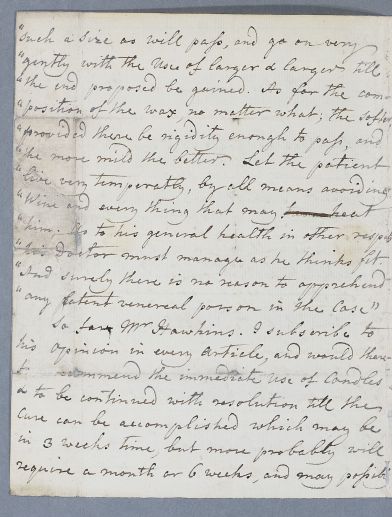 "such a size as will pass, and go on very
"gently with the Use of larger & larger till
"the end proposed be gained. As for the com-
"position of the wax no matter what; the softer
"provided there be rigidity enough to pass, and
"the more mild the better. Let the patient
"live very temperately, by all means avoiding
"Wine and every thing that may heat
"him. As to his general health in other respects
"his Doctor must manage as he thinks fit.
"And surely there is no reason to apprehend
"any latent venereal poison in the Case"
So far Mr Hawkins. I subscribe to
his opinion in every Article, and would there-
recommend the immediate use of Candles
& to be continued with resolution till the
Cure can be accomplished which may be
in 3 weeks time, but more probably will
require a month or 6 weeks, and may possibly